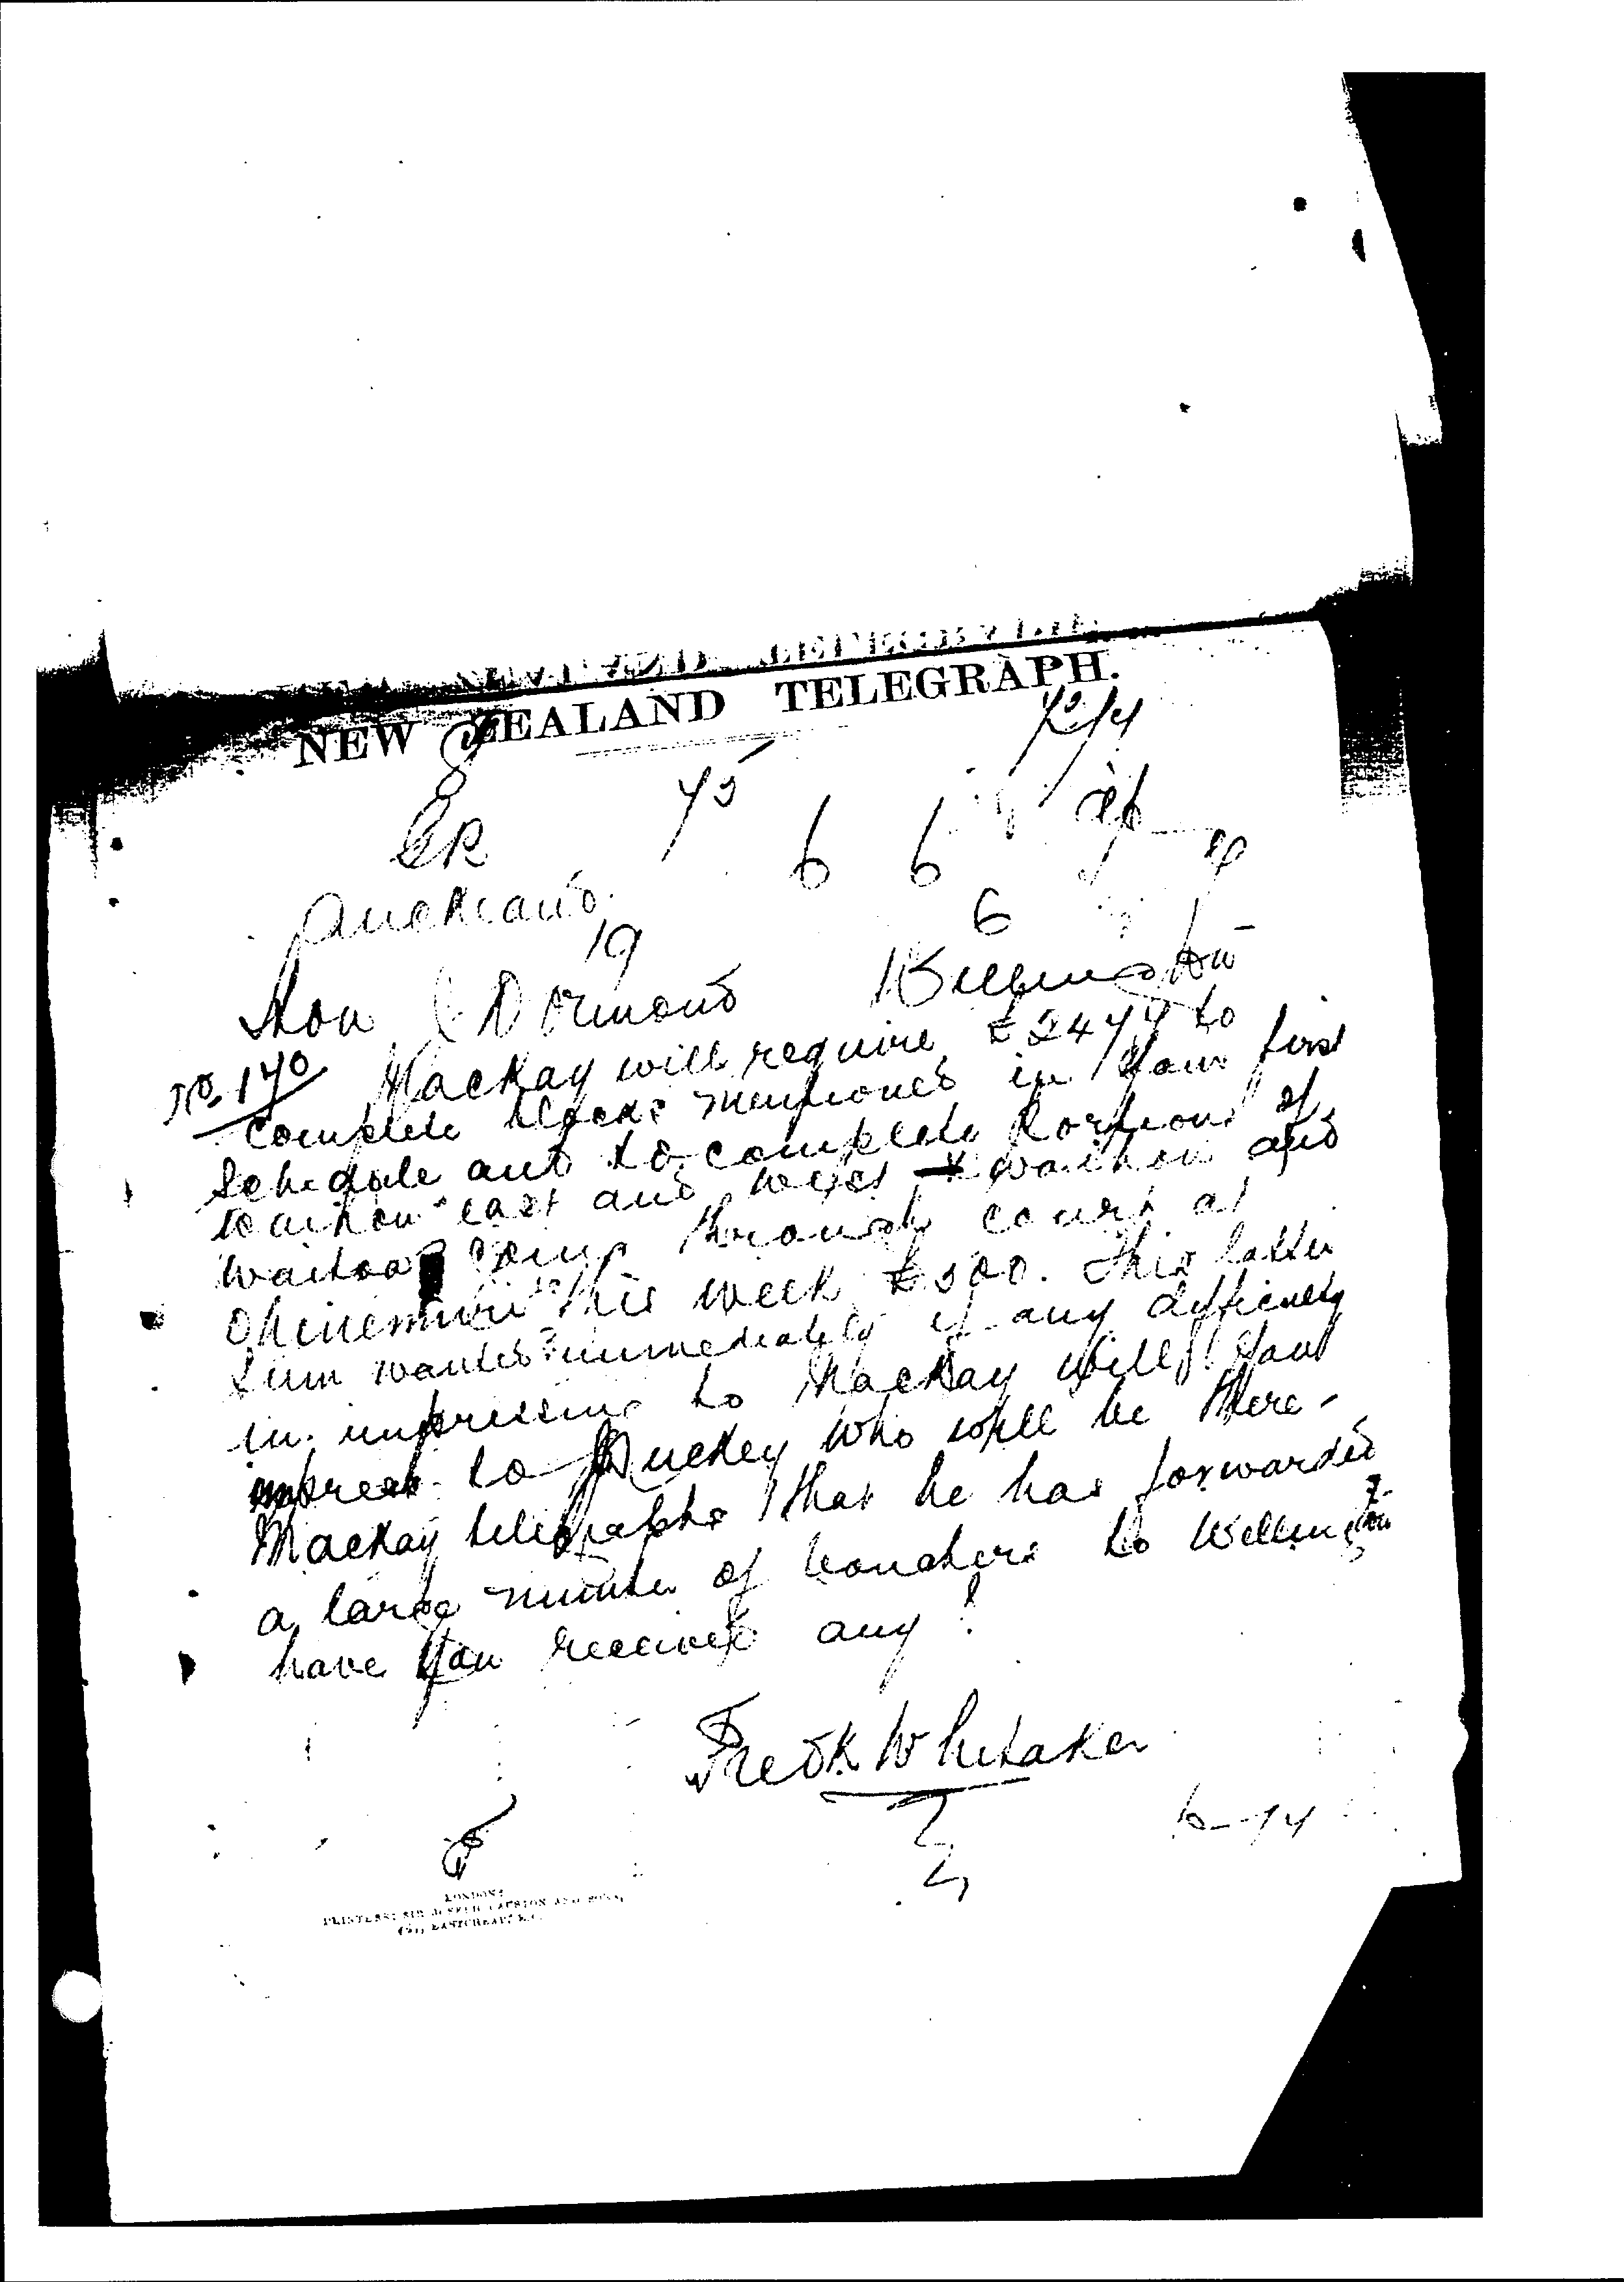 NEW ZEALAND TELEGRAPH.
75
6 6
Auckland
19
6
Hon J D Ormond Wellington
No. 170 Mackay will require £2477 to
complete blocks mentioned in your first
Schedule and to complete portions of
waihou east and west waihou and
waitoa going through court at
Ohinemuri this week £500. This latter
sum wanted immediately if any difficulty
in impressing to Mackay will you
imprest to Puckey who will be there -
Mackay telegraphs that he has forwarded
a large number of vouchers to Wellington
have you received any?
Fredk Whitaker
6-74
LONDON:
PRINTERS: SIR JOSEPH CAUSTON AND SONS,
EASTCHEAP, E.C.